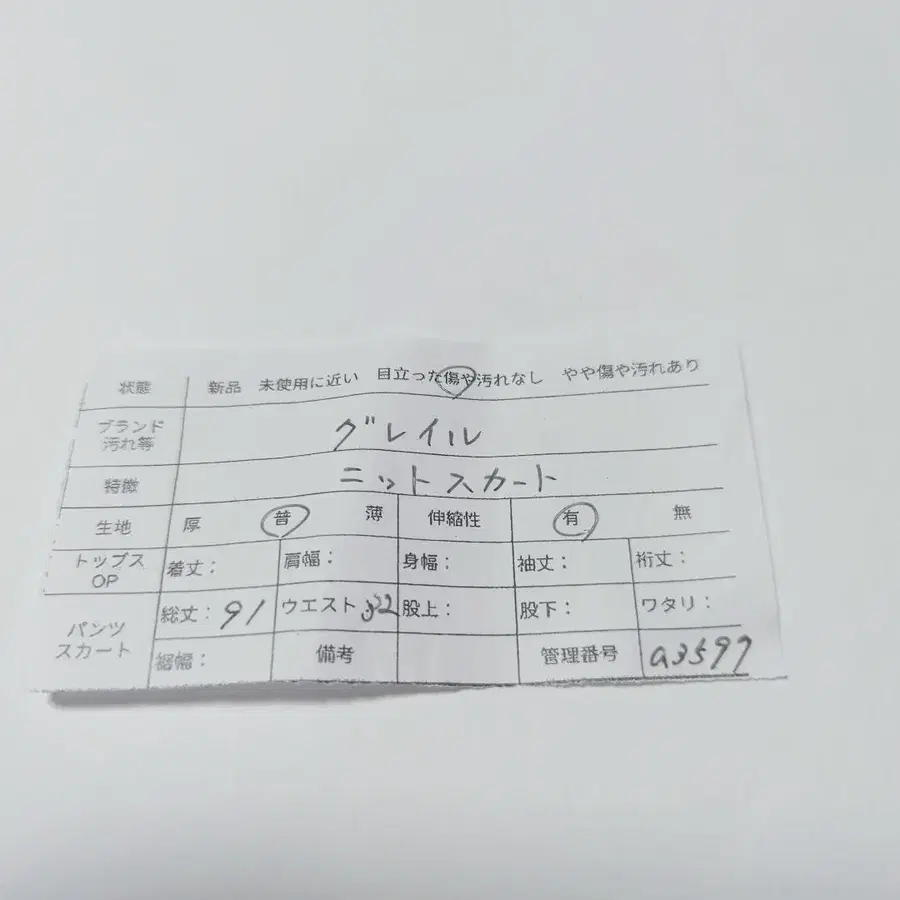 状態 新品 未使用に近い 目立った傷や汚れなし やや傷や汚れあり
ブランド グレイル
汚れ等
特徴 ニットスカート
生地 厚 普 薄 伸縮性 有 無
トップス OP 着丈: 肩幅: 身幅: 袖丈: 裄丈:
パンツ スカート 総丈:91 ウエスト: 股上: 股下: ワタリ:
裾幅: 備考 管理番号 a3597